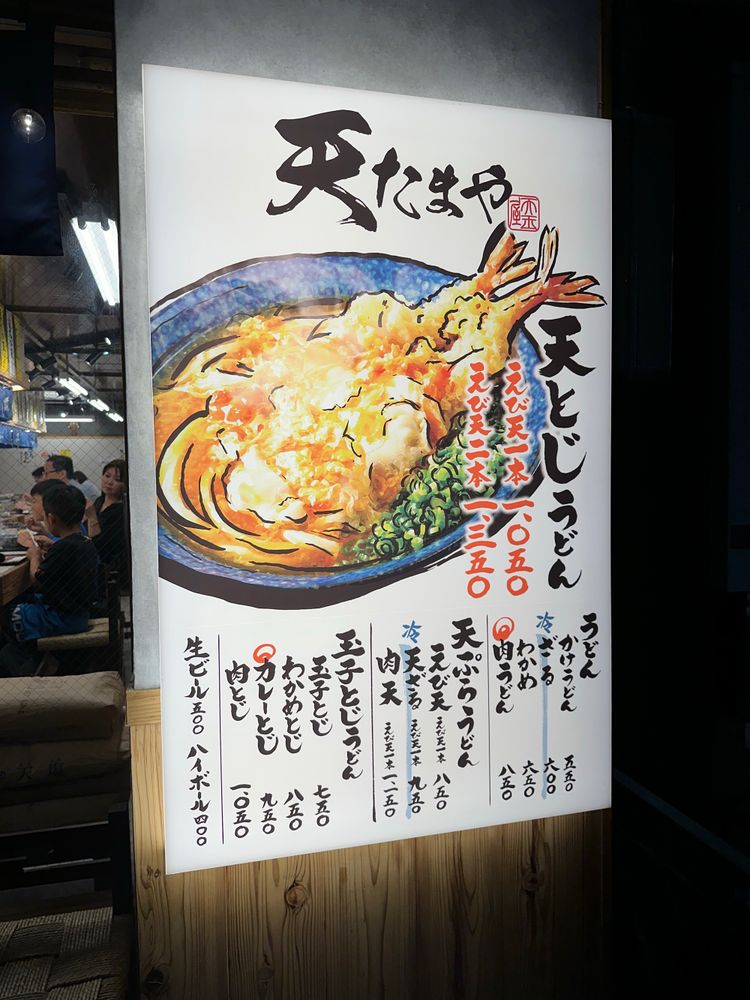 天たまや
天とじうどん
えび天一本 一、〇五〇
えび天二本 一、三五〇
うどん
かけうどん 五五〇
冷 ざる 六〇〇
わかめ 六五〇
肉うどん 八五〇
天ぷらうどん
えび天 えび天一本 八五〇
冷 天ざる えび天一本 九五〇
肉天 えび天一本 一、一五〇
玉子とじうどん
玉子とじ 七五〇
わかめとじ 八五〇
カレーとじ 九五〇
肉とじ 一、〇五〇
生ビール 五〇〇 ハイボール 四〇〇